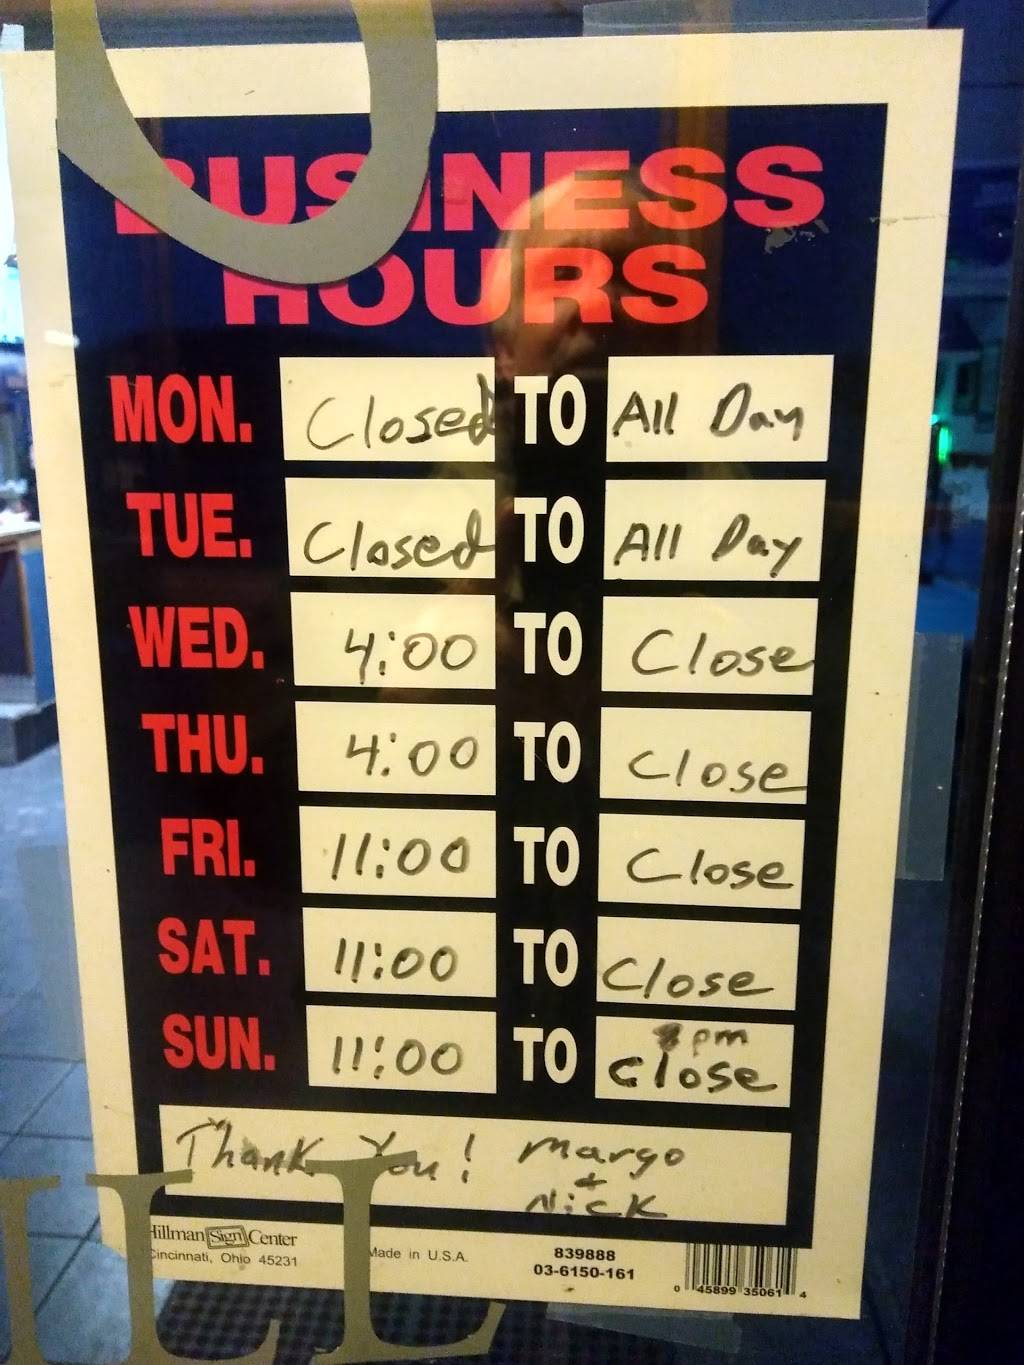 BUSINESS
HOURS
MON. Closed TO All Day
TUE. Closed TO All Day
WED. 4:00 TO Close
THU. 4:00 TO Close
FRI. 11:00 TO Close
SAT. 11:00 TO Close
SUN. 11:00 TO pm Close
Thank You! Margo
+
Nick
Hillman Sign Center
Cincinnati, Ohio 45231
Made in U.S.A.
839888
03-6150-161
0 45899 35061 4
LL